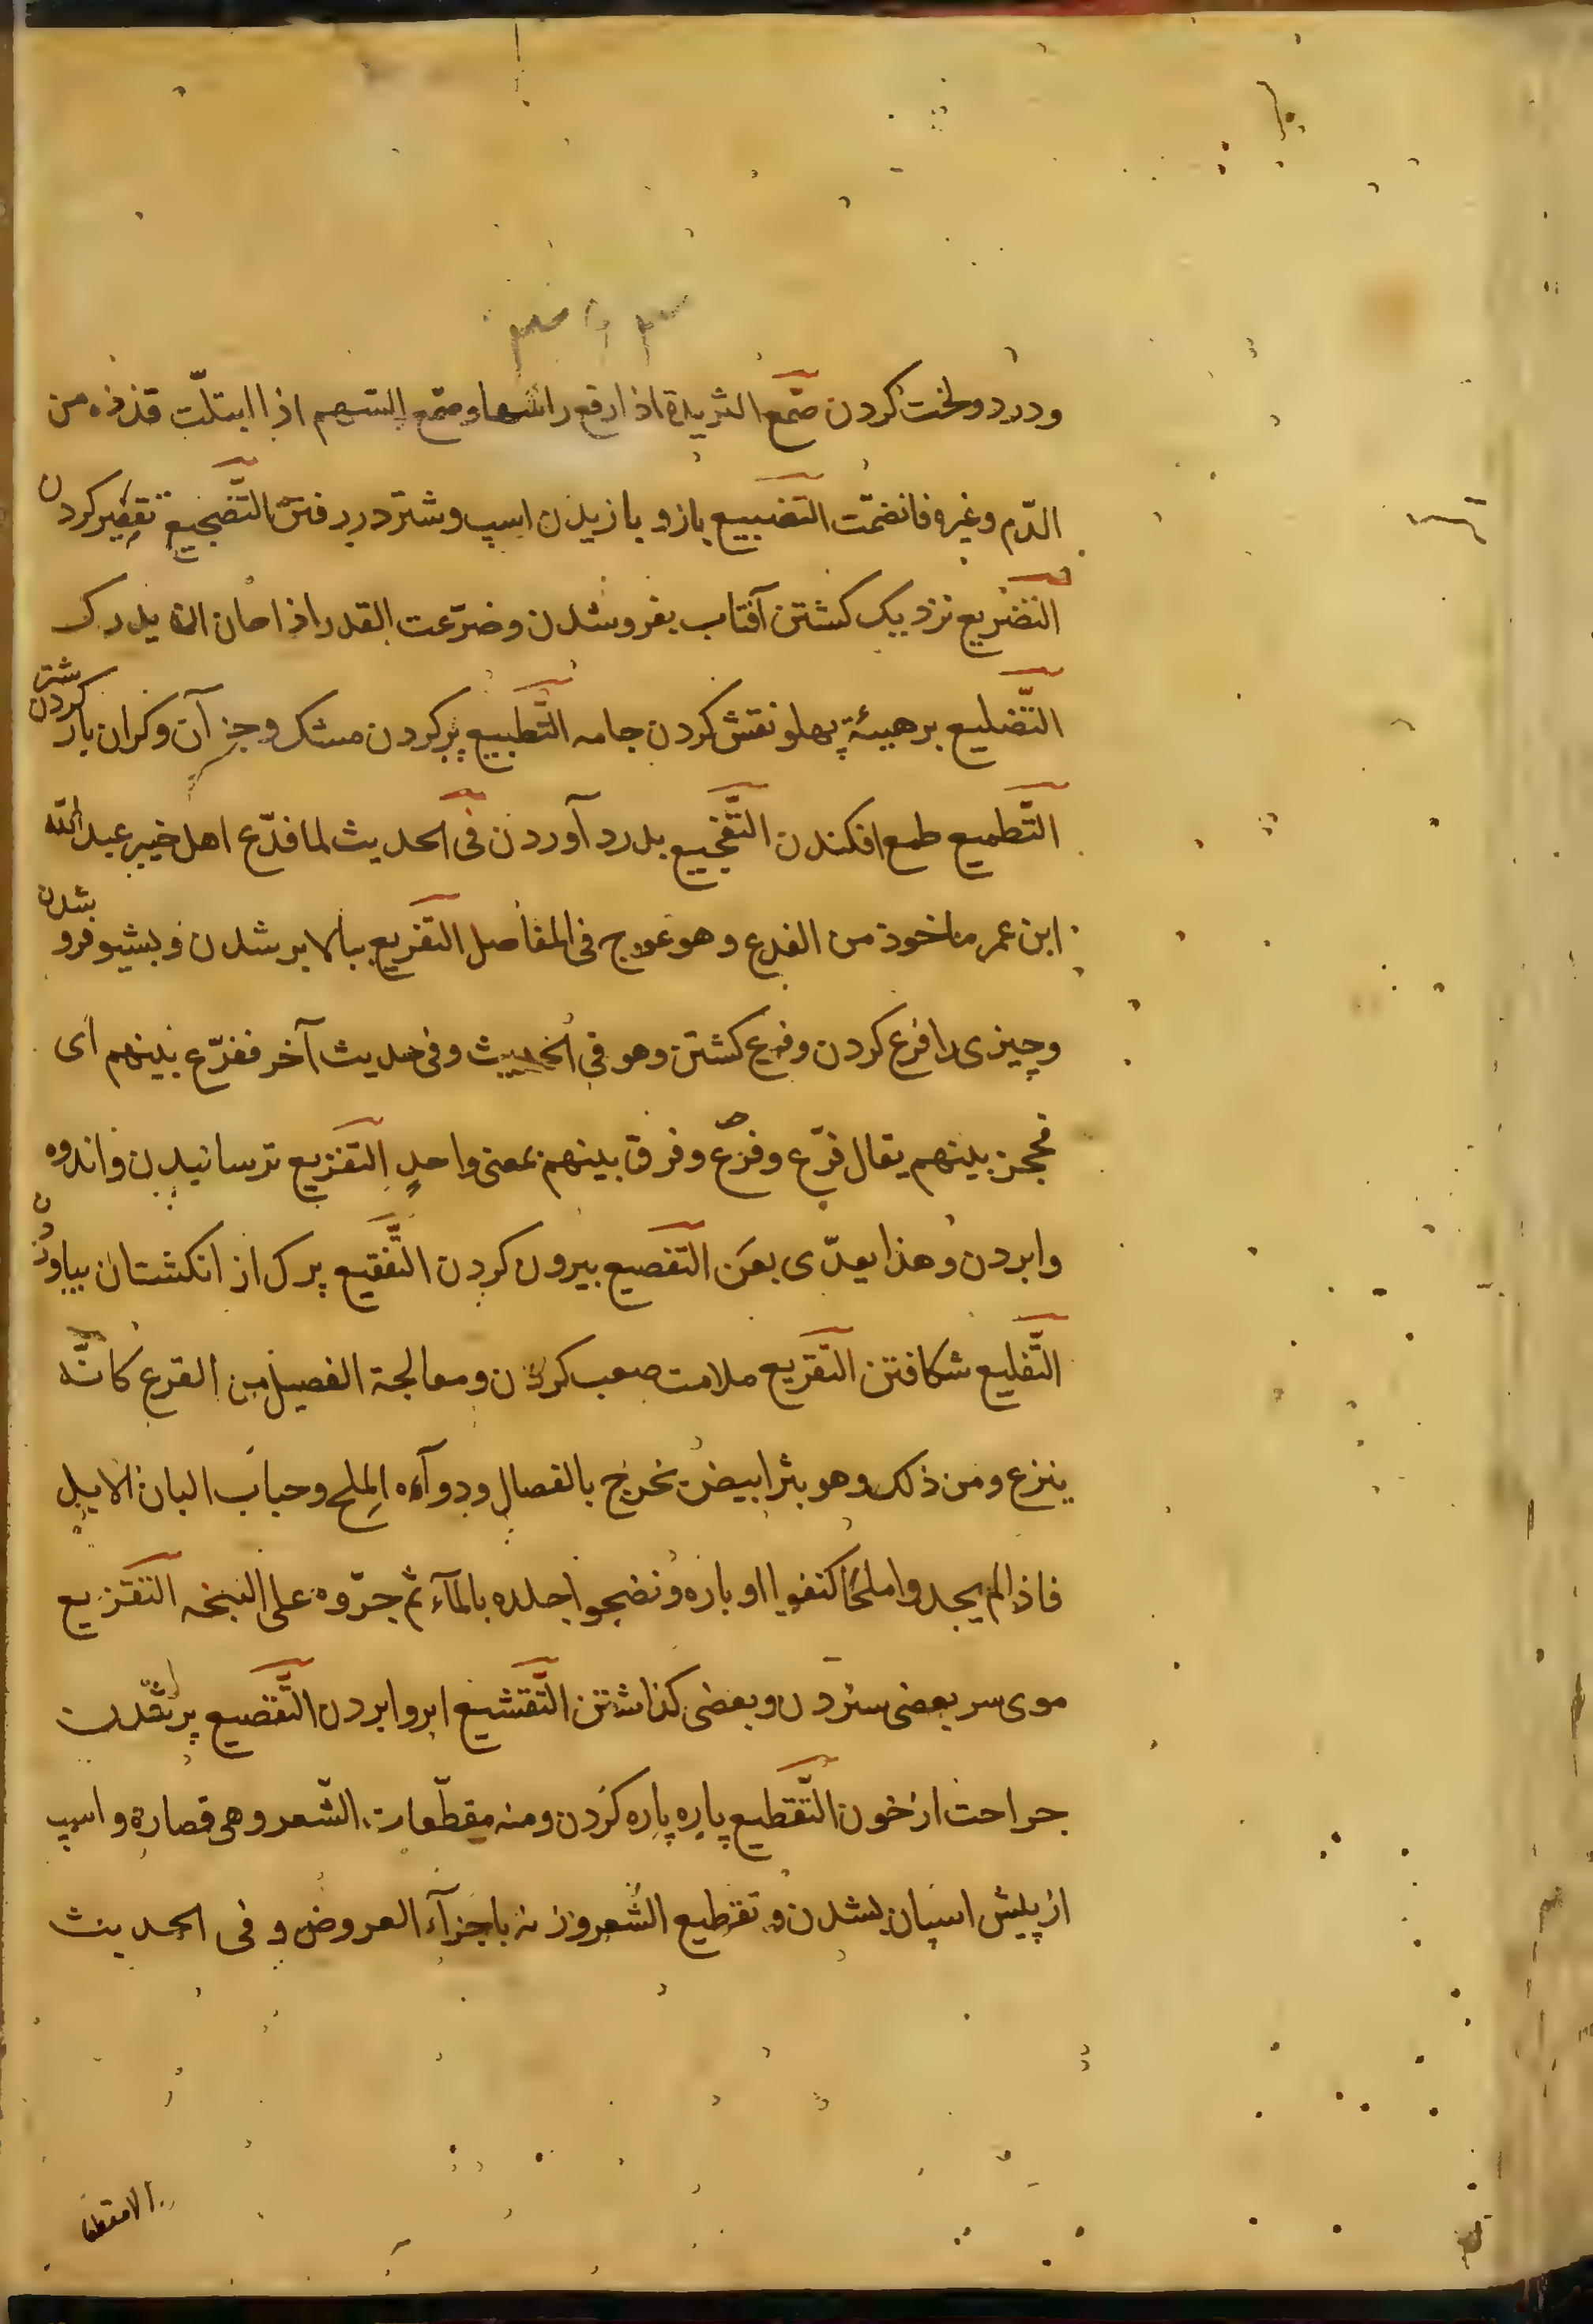 ودرد ولخت کردن صمّع الثریدة اذا رفع راسها وصمّع السّهم اذا ابتلّت قذذه من
الدّم وغیره فانضمّت التضبیع بازو یا زیدن اسپ وشتر در رفتن التّضجیع تقصیر کردن
التضریع نزدیک کشتن آفتاب بفروشدن وضرّعت القدر اذا حان ان یدرک
التّضلیع برهیئة پهلو نقش کردن جامه التّطبیع پر کردن مشک وجز آن وکران بار کردن شتر
التّطمیع طمع افکندن التّفجیع بدرد آوردن فی الحدیث لما فدّع اهل خیبر عبد الله
ابن عمر ماخوذ من الفدع وهو عوج فی المفاصل التفریع ببالا بر شدن وبشیو فرو بشدن
وچیزی را فرع کردن وفرع کشتن وهو فی الحدیث وفی حدیث آخر ففرّع بینهم ای
فحجز بینهم یقال فرّع وفزّع وفرق بینهم بمعنی واحدٍ التفزیع ترسانیدن واندوه
وا بردن وهذا یعدّی بعَن التفصیع بیرون کردن التّفقیع پرک از انکشتان بیاوردن
التّفلیع شکافتن التّقریع ملامت صعب کردن ومعالجة الفصیل من القرع کانّه
ینزع ومن ذلک وهو بثر ابیض تخرج بالفصال ودوآءه الملح وحباب البان الابل
فاذا لم یجدوا ملحًا کنفوا اوباره ونضجوا جلده بالمآء ثم جرّوه علی السبخه التقزیع
موی سر بعضی ستردن وبعضی کذاشتن التّقشیع ابر وا بردن التّقصیع پر شدن
جراحت از خون التّقطیع پاره پاره کردن ومنه مقطّعات الشّعر وهی قصاره واسپ
از پیش اسپان بشدن وتقطیع الشّعر وزنه باجزآء العروض وفی الحدیث
الا مقطعا